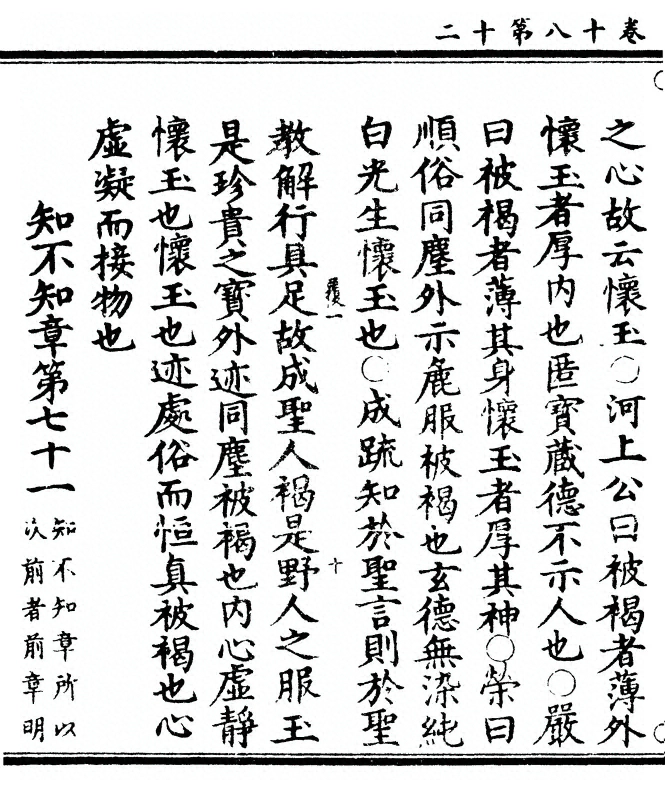 卷十八第十二
之心故云懷玉〇河上公曰被褐者薄外
懷玉者厚内也匿寶藏德不示人也〇嚴
曰被褐者薄其身懷玉者厚其神〇榮曰
順俗同塵外示麁服被褐也玄德無染純
白光生懷玉也〇成䟽知於聖言則於聖
覆一
十
教解行具足故成聖人褐是野人之服玉
是珍貴之寶外迹同塵被褐也内心虛靜
懷玉也懷玉也迹處俗而恒真被褐也心
虛凝而接物也
知不知章第七十一
知不知章所以
次前者前章明